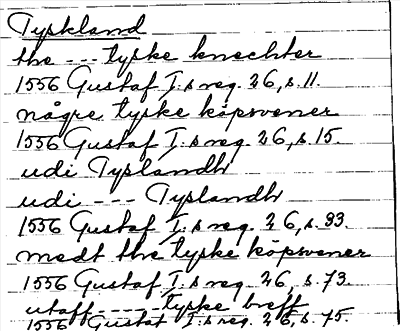 Tyskland
the --- tyske knechter
1556 Gustaf I:s reg. 26, s. 11.
någre tyske köpsvener
1556 Gustaf I:s reg. 26, s. 15.
udi Tyslandh
udi --- Tyslandh
1556 Gustaf I:s reg. 26, s. 33.
medt the tyske köpsvener
1556 Gustaf I:s reg. 26, s. 73.
utaff --- tyske breff
1556 Gustaf I:s reg. 26, s. 75.